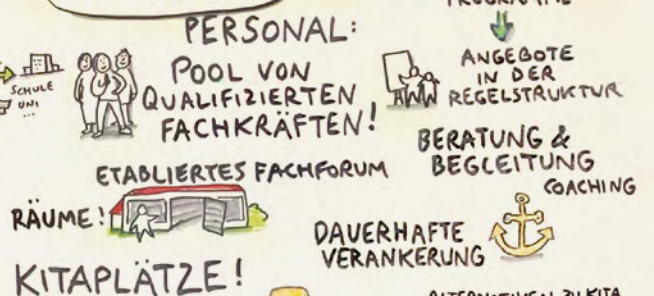 PERSONAL:
POOL VON
QUALIFIZIERTEN
FACHKRÄFTEN!
SCHULE
UNI
...
PROGRAMME
ANGEBOTE
IN DER
REGELSTRUKTUR
BERATUNG &
BEGLEITUNG
COACHING
ETABLIERTES FACHFORUM
RÄUME!
DAUERHAFTE
VERANKERUNG
KITAPLÄTZE!
ALTERNATIVEN ZU KITA